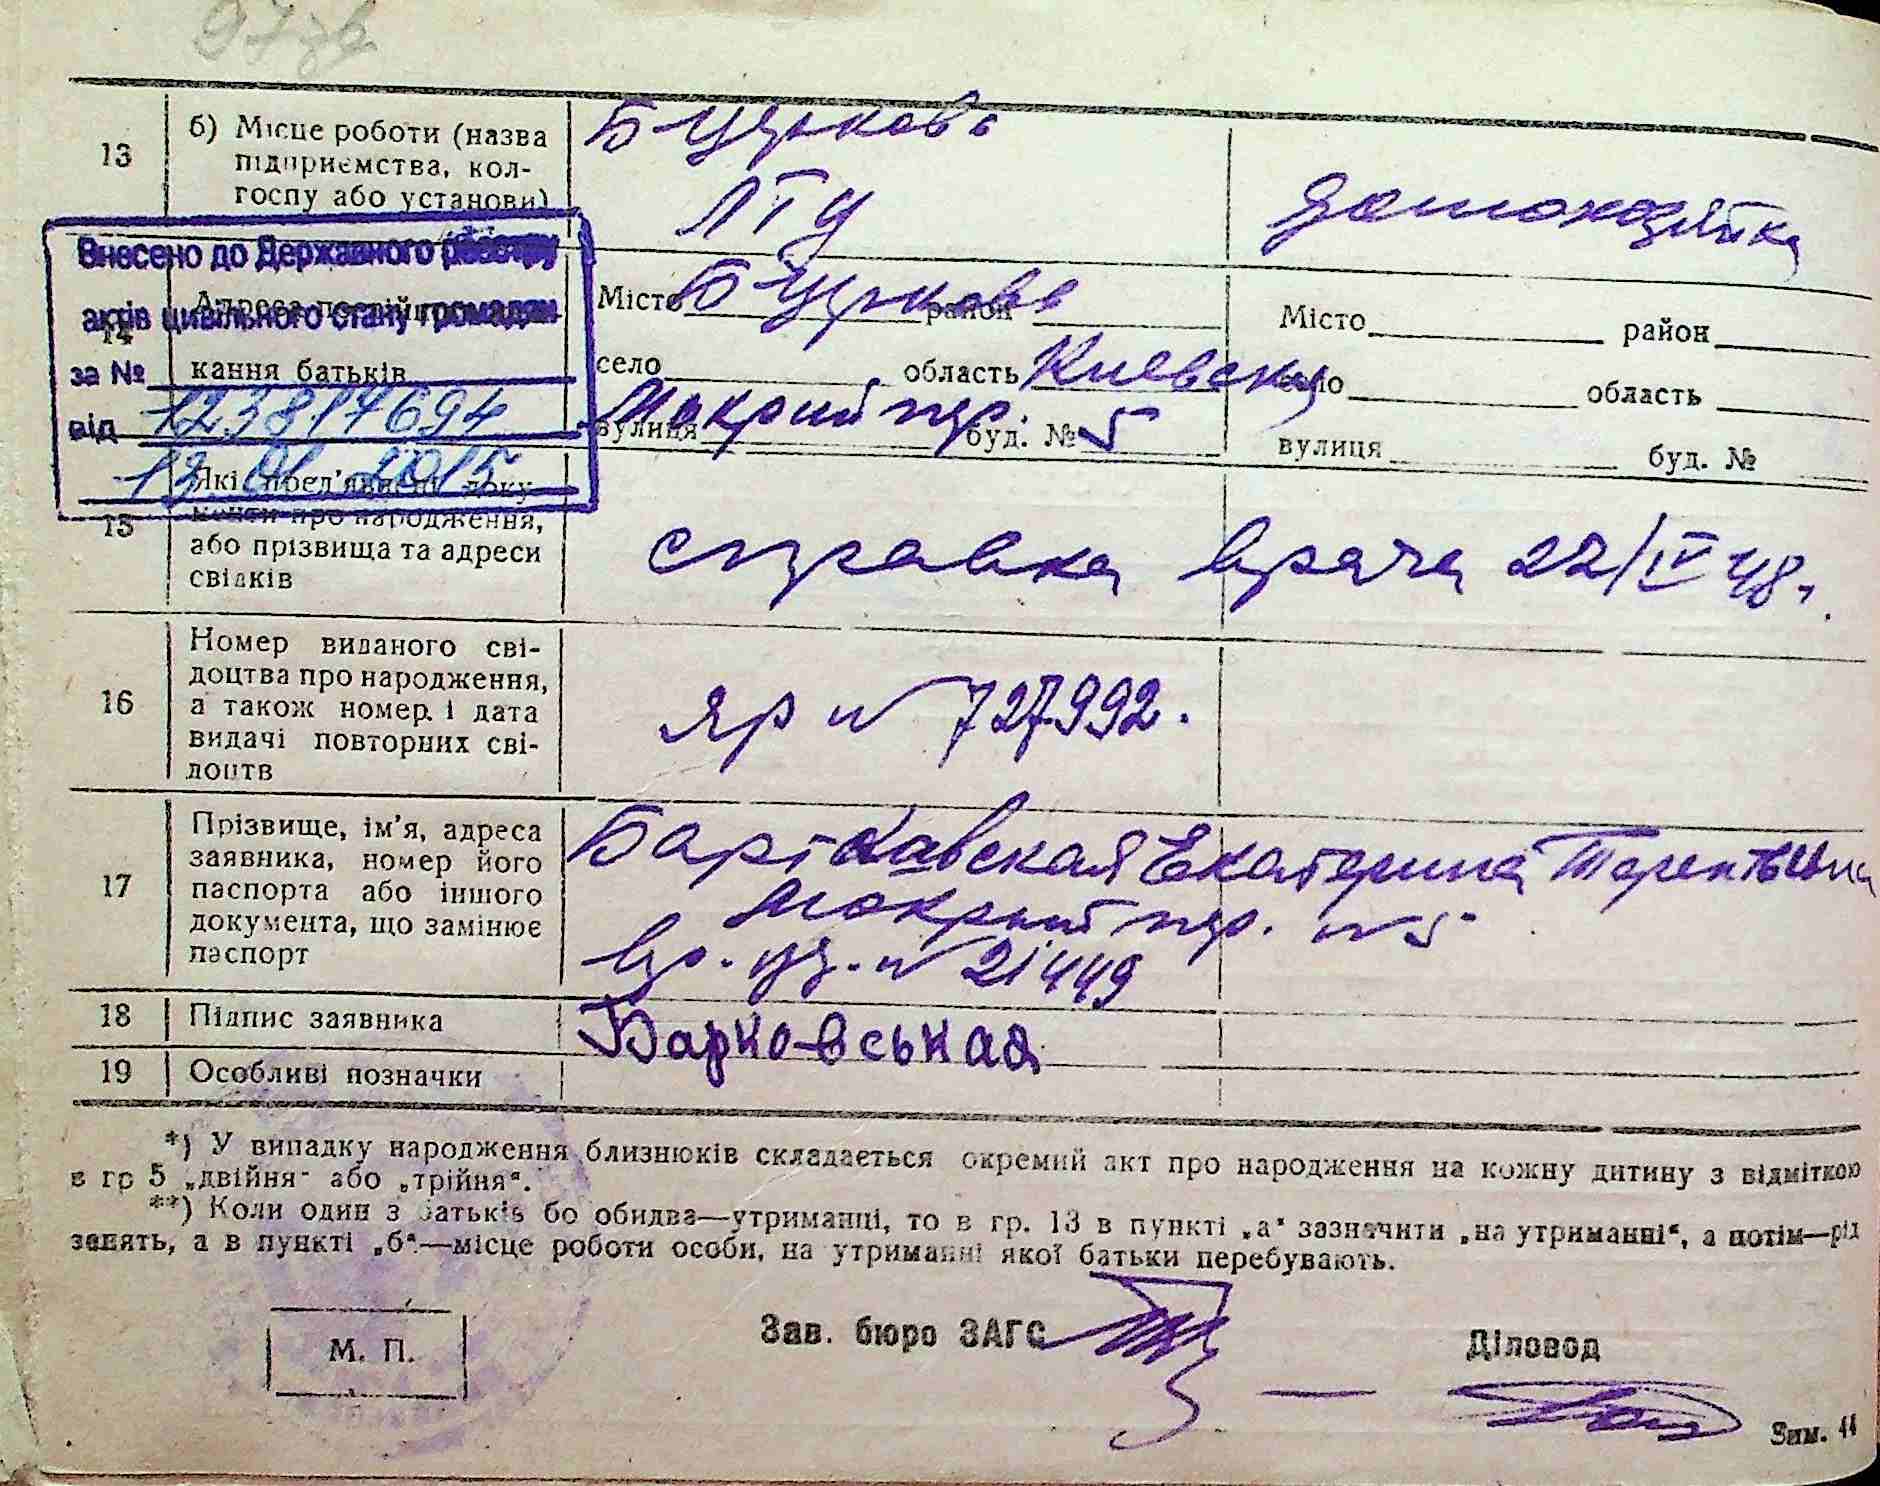 97зв
13
б) Місце роботи (назва
підприємства, кол-
госпу або установи)
ЛТУ
домохозяйка
Внесено до Державного реєстру
актів цивільного стану громадян
за №
від
12
01 2015
14
Адреса
кання батьків
Місто район
село область Киевская
Мокрий пер.
вулиця буд. № 5
Місто район
село область
вулиця буд. №
15
Які пред'явлені доку
менти про народження,
або прізвища та адреси
свідків
справка врача 22/IV 48 г.
16
Номер виданого сві-
доцтва про народження,
а також номер і дата
видачі повторних сві-
доцтв
ЯР № 727992.
17
Прізвище, ім'я, адреса
заявника, номер його
паспорта або іншого
документа, що замінює
паспорт
Екатерина Терентьевна
Мокрый пер. № 5
вр. уд. № 21449
18
Підпис заявника
Барковськая
19
Особливі позначки
*) У випадку народження близнюків складається окремий акт про народження на кожну дитину з відміткою
в гр 5 „двійня" або „трійня".
**) Коли один з батьків бо обидва—утриманці, то в гр. 13 в пункті „а" зазначити „на утриманні", а потім—рід
занять, а в пункті „б"—місце роботи особи, на утриманні якої батьки перебувають.
М. П.
Зав. бюро ЗАГС
Діловод
Зим. 44